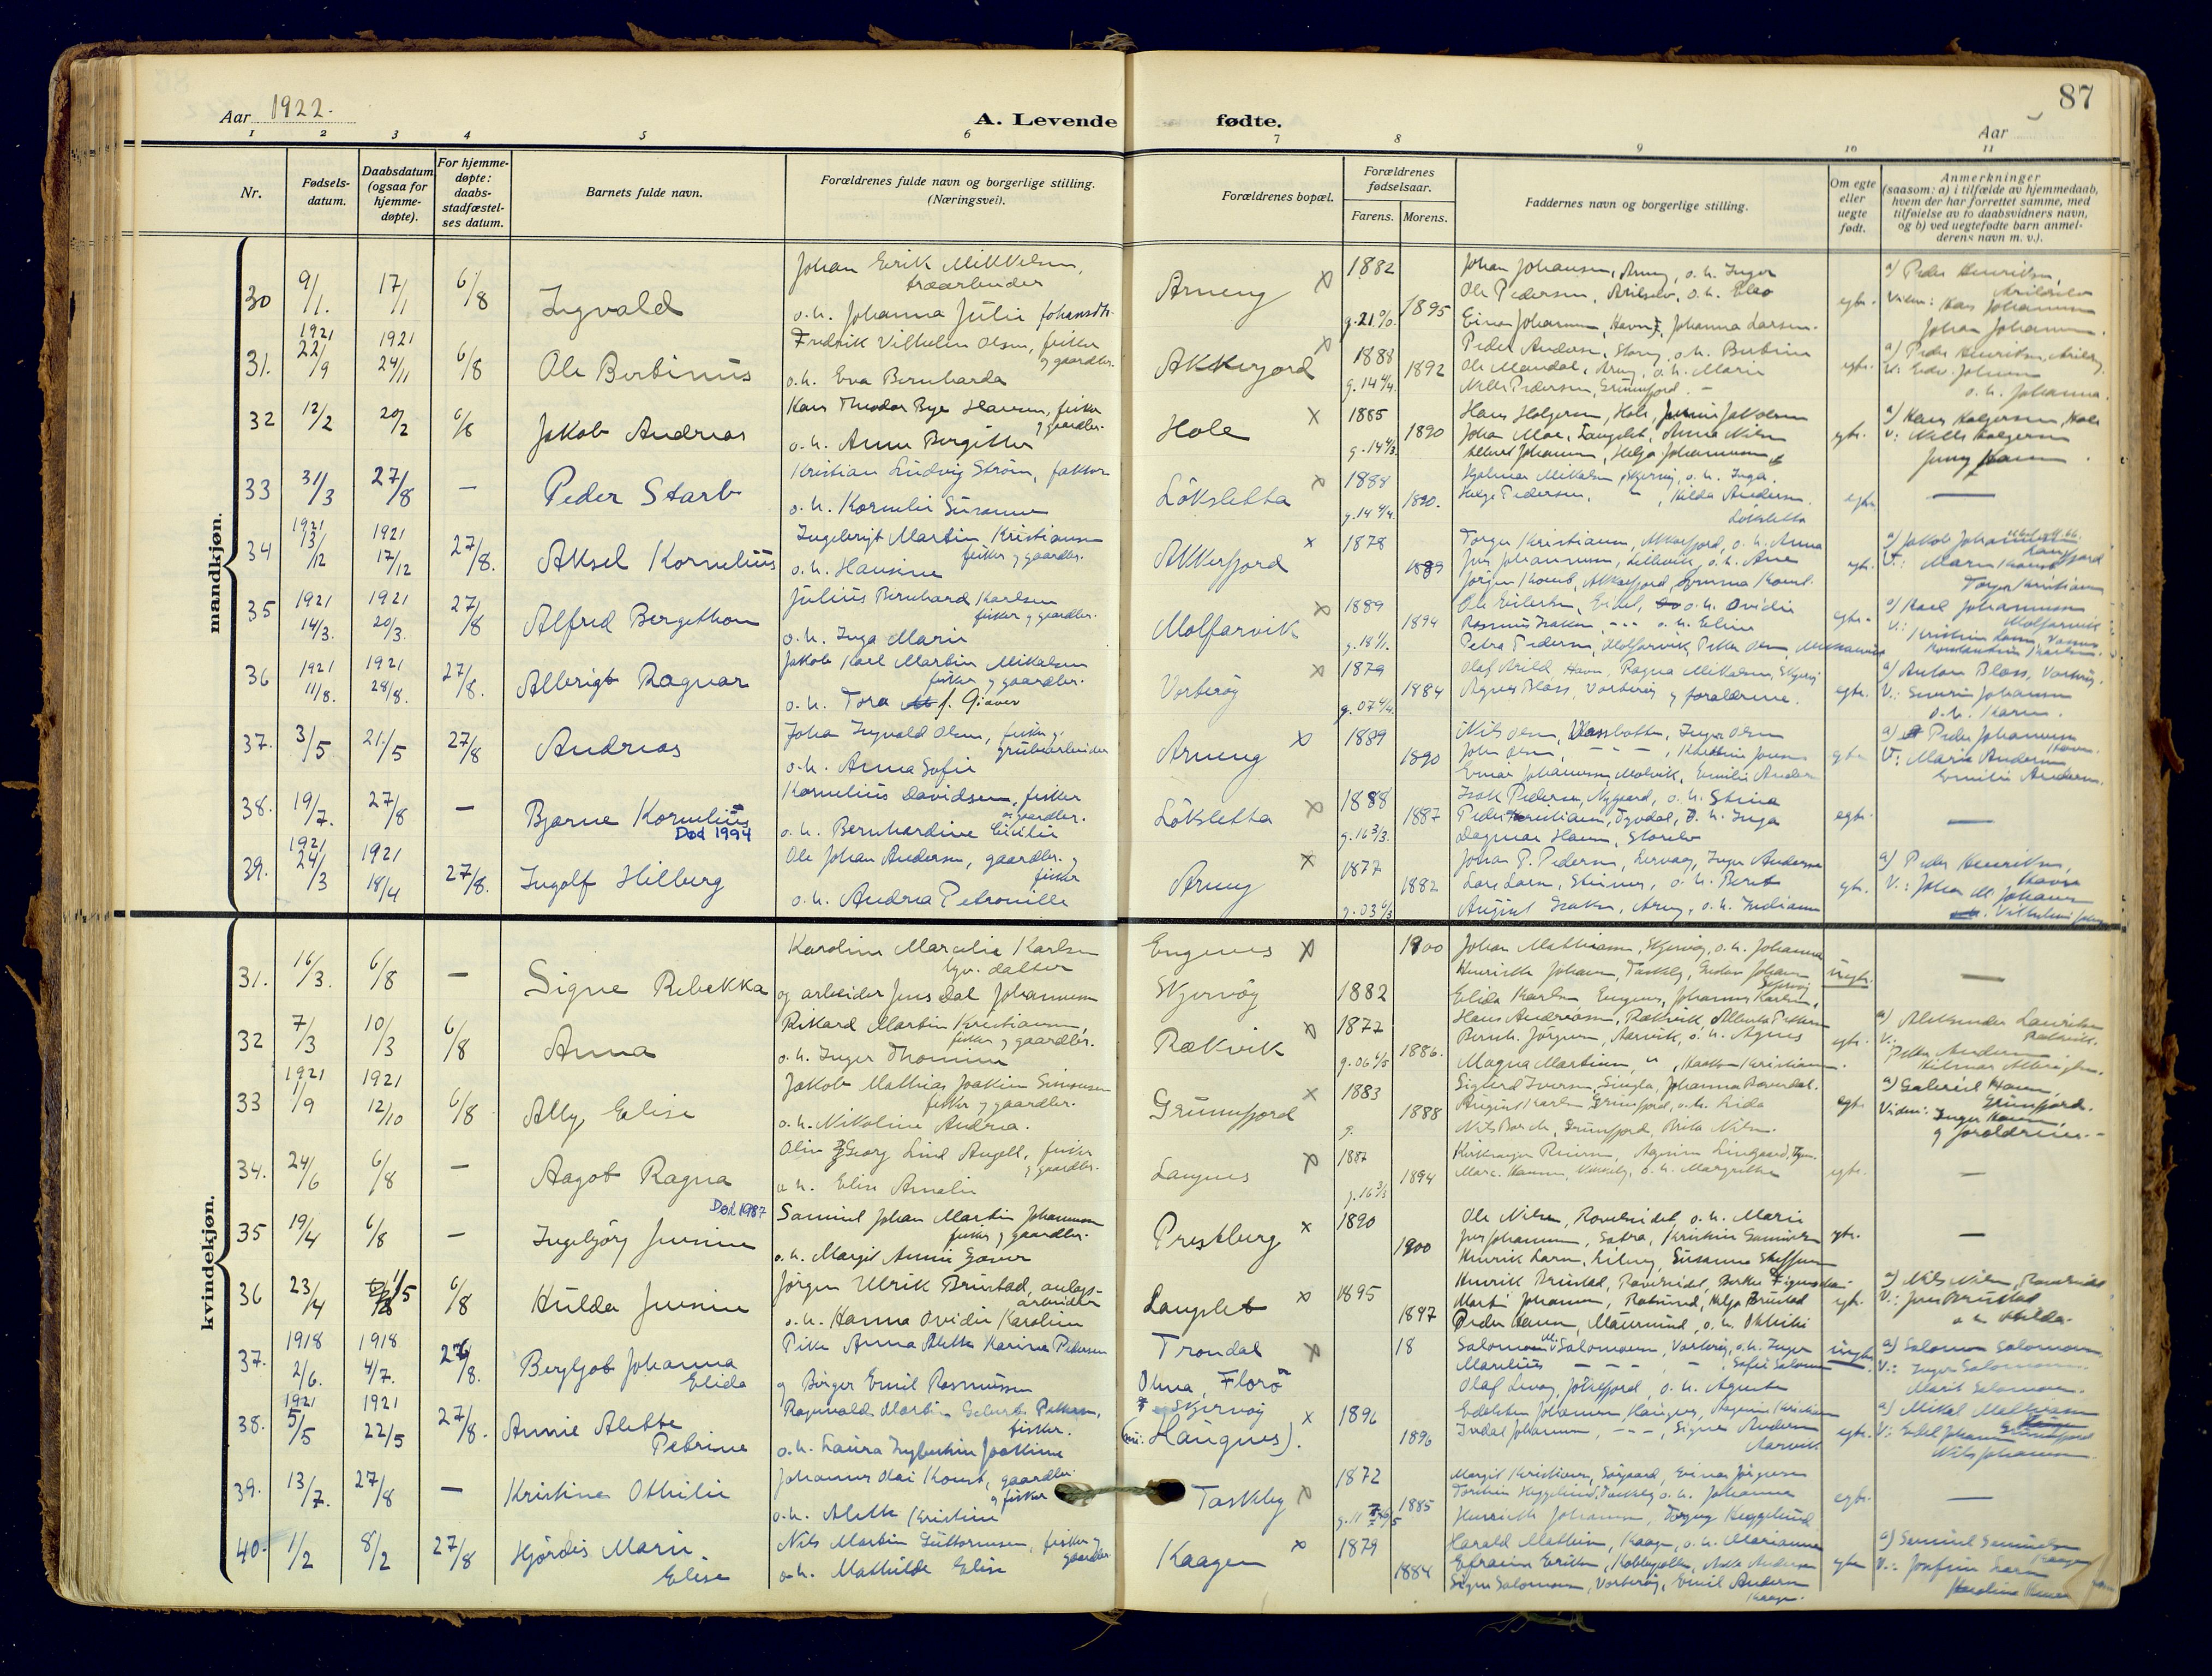 87
Aar 1922.
A. Levende fødte.
Aar
1 2 3 4 5 6 7 8 9 10 11
Nr.
Fødsels-
datum.
Daabsdatum
(ogsaa for
hjemme-
døpte).
For hjemme-
døpte:
daabs-
stadfæstel-
ses datum.
Barnets fulde navn.
Forældrenes fulde navn og borgerlige stilling.
(Næringsvei).
Forældrenes bopæl.
Forældrenes
fødselsaar.
Farens. Morens.
Faddernes navn og borgerlige stilling.
Om egte
eller
uegte
født.
Anmerkninger
(saasom: a) i tilfælde av hjemmedaab,
hvem der har forrettet samme, med
tilføielse av to daabsvidners navn,
og b) ved uegtefødte barn anmel-
derens navn m. v.).
mandkjøn.
30 9/1. 17/1 6/8 Ingvald
Johan Erik Mikkelsen,
træarbeider
o.h. Johanna Julie Johansdtr.
Arneng x 1882 g. 21 1895
Johan Johansen, Arneng, o.h. Inger
Ole Pedersen, o.h.
Einar Johansen, Havn, Johanna Larsen.
egte.
a) Peder Henriksen,
Vidner: Hans Johansen
Johan Johansen.
31. 1921 22/9 1921 24/11 6/8 Ole Berbinus
Fredrik Vilhelm Olsen, fisker
g gaardbr.
o.h. Eva Bernharda
Akkerfjord x 1888 g. 14 1892
Peder Andersen, o.h. Berbine
Ole Mandal, Arneng, o.h. Marie
Nelly Pedersen, Grunnfjord
egte.
a) Peder Henriksen,
V: Edv. Johnsen
o.h. Johanna.
32 12/2 20/2 6/8 Jakob Andreas
Hans Theodor Bye Hansen, fisker
g gaardbr.
o.h. Anna Bergitte
Hole x 1885 g. 14 1890
Hans Holgersen, Hole, Jakobsen
Johan Moe, Langslet, Anna Nilsen
Johansen, Helga Johannesen
egte.
a) Hans Holgersen, Hole
V: Nelly Holgersen
Jenny Hansen.
33 31/3 27/8 – Peder Starb
Kristian Ludvig Strøm, faktor
o.h. Kornelie Susanne
Løksletta x 1888 g. 14 1890.
Hjalmar Mikalsen, Skjervøy, o.h. Inga.
Helge Pedersen, Hilda Andersen.
Løksletta
egte. –
34 1921 13/12 1921 17/12 27/8. Aksel Kornelius
Ingebrigt Martin Kristiansen
fisker g gaardbr.
o.h. Hansine
Akkerfjord x 1878 1889
Torger Kristiansen, Akkerfjord, o.h. Anna
Jens Johannesen, Lillevik, o.h. Ane
Jørgen Konst, Akkerfjord, Konst.
egte.
a) Jakob Johannesen
V: Marie Konst
Torger Kristiansen
35 1921 14/3. 1921 20/3. 27/8 Alfred Bergethon
Julius Bernhard Karlsen
fisker g gaardbr.
o.h. Inga Marie
Molfarvik x 1889 g. 18 1/1. 1894
Ole Eilertsen, o.h. Ovidie
Rasmus Isaksen, – – – o.h. Eline
Petra Pedersen, Molfarvik, Petter Olsen
egte.
a) Karl Johannesen
Molfarvik
V:
36 1921 11/8. 1921 28/8. 27/8. Albrigt Ragnar
Jakob Karl Martin Mikalsen
fisker g gaardbr.
o.h. Tora f. Giæver
Vorterøy x 1879 g. 07 1884
Olaf Arild, Havn, Ragna Mikalsen, Skjervøy
Agnes Blass, Vorterøy g forældrene.
egte.
a) Anton Blass, Vorterøy.
V.: Severin Johansen
o.h. Karen.
37. 3/5 21/5 27/8 Andreas
Johan Ingvald Olsen, fisker g
grubearbeider
o.h. Anna Sofie
Arneng x 1889 1890
Nils Olsen, Vassbotten, Inga Olsen
John Olsen, – – – , Jensen
Einar Johannesen, Molvik, Emilie Andersen
egte
a) Peder Johannesen
Havn.
V: Marie Andersen
Emilie Andersen.
38. 19/7. 27/8 – Bjarne Kornelius
Død 1994
Kornelius Davidsen, fisker
g gaardbr.
o.h. Bernhardine Emilie
Løksletta x 1888 g. 16 3/3. 1887
Isak Pedersen, Nygaard, o.h. Stina
Peder Kristiansen, o.h. Inga
Dagmar Hansen, Storelv
egte. –
39. 1921 24/3 1921 18/4 27/8. Ingolf Hilberg
Ole Johan Andersen, gaardbr. g
fisker
o.h. Andrea Petronille
Arnøy x 1877 g. 03 1882
Johan P. Pedersen, Lervaag, Inger Andersen
Lars Larsen, Steines, o.h. Berit
August Isaksen, Arnøy, o.h. Indiane
egte.
a) Peder Henriksen,
Havn
V.: Johan M. Johansen
kvindekjøn.
31. 16/3. 6/8 – Signe Rebekka
Karoline Marcelie Karlsen
og arbeider Jens Dal Johannesen
Engenes x Skjervøy 1882 1900
Johan Mathiassen, Skjervøy, o.h. Johanna
Henrikke Johansen, Taskeby, Gustav Johansen
Skjervøy
Elida Karlsen Engenes, Johannes Karlsen,
uegte. –
32 7/3 10/3 6/8 Anna
Rikard Martin Kristiansen,
fisker g gaardbr.
o.h. Inger Thomine
Rækvik x 1877 g. 06 1886.
Hans Andreassen, Rækvik, Alberte Pettersen
Bernh. Jørgensen, Aarvik, o.h. Agnes
Magna Martinsen, " , Haakon Kristiansen.
egte.
a) Aleksander Lauritsen
Rækvik.
V.: Petter Andersen
Hilmar Albrigtsen.
33 1921 1/9 1921 12/10 6/8 Ally Elise
Jakob Mathias Joakim Simonsen
fisker g gaardbr.
o.h. Nikoline Andrea.
Grunnfjord x 1883 g. 1888
Sigurd Iversen, Singla, Johanna
August Karlsen Grunnfjord, o.h. Lida
Nils Borch, Grunnfjord, Brita Nilsen.
egte.
a) Gabriel Hansen,
Grunfjord.
Vidner: Inger Hansen
g forældrene. –
34. 24/6 6/8 – Aagot Ragna
Død 1987
Oliver Georg Lind Angell, fisker
g gaardbr.
o.h. Elise Amalie
Langnes x 1887 g. 16 3/3 1894
Kirkesanger
Marc. Hansen, o.h. Margrethe
egte. –
35 19/4 6/8 – Ingebjørg Junine
Samuel Johan Martin Johannesen
fisker g gaardbr.
o.h. Margit Annie Gæver
Prestberg x 1890 1900
Ole Nilsen, Ravelseidet, o.h. Marie
Jens Johannesen, Sætra, Kristine Samuelsen
Henrik Larsen, Susanna Steffensen
egte. –
36 23/4 1/5 6/8 Hulda Junine
Jørgen Ulrik Brustad, anlægs-
arbeider
o.h. Hanna Ovidie Karoline
Langslet x 1895 1897
Henrik Brustad, Ravelseidet,
Martin Johansen, Rotsund, Helga Brustad
Peder Hansen, Maursund, o.h. Othilie
egte.
a) Nils Nilsen, Ravelseidet
V.: Jens Brustad
o.h. Hilda.
37. 1918 2/6. 1918 4/7. 27/8. Bergljot Johanna
Elida
Pike Anna Aletta Karine Pedersen
g Birger Emil Rasmussen
Trondal x
Florø
18
Salomon Salomonsen, Vorterøy, o.h. Inger
Marelius – – – Sofie Salomonsen
Olaf Jøkelfjord, o.h. Agneta
uegte.
a) Salomon Salomonsen
V.: Inger Salomonsen.
Marit Salomonsen.
38. 1921 5/5 1921 22/5 27/8. Annie Alette
Petrine
Ragnvald Martin Edvart Pettersen,
fisker.
o.h. Laura Ingeborg Joakime
Skjervøy x
(nu: Haugnes).
1896 1896
Edelsten Johansen, Haugnes, Kristiansen
Indal Johansen, – – – , Signe Andersen
Aarvik
egte.
a) Mikal Mathiassen
Grunnfjord
Nils Johansen.
39. 13/7. 27/8 – Kristine Othilie
Johannes Olai Konst, gaardbr.
g fisker
o.h. Alette Kristine
Taskeby x 1872 g. 11 1885
Margit Kristiansen, Sørgaard, Einar Jørgensen
Torstein Heggelund, Taskeby o.h. Johanna
Henrikke Johansen, Heggelund
egte. –
40. 1/2 8/2 27/8 Hjørdis Marie
Elise
Nils Martin Guttormsen, fisker g
gaardbr.
o.h. Mathilde Elise
Kaagen x 1879 1884
Harald Mathisen, Kaagen, o.h. Marianne
Efraim Eriksen, Andersen
Signe Salomonsen, Vorterøy, Emil Andersen
Kaagen.
egte
a) Samuel Samuelsen
Kaagen
V.: Josefine Larsen